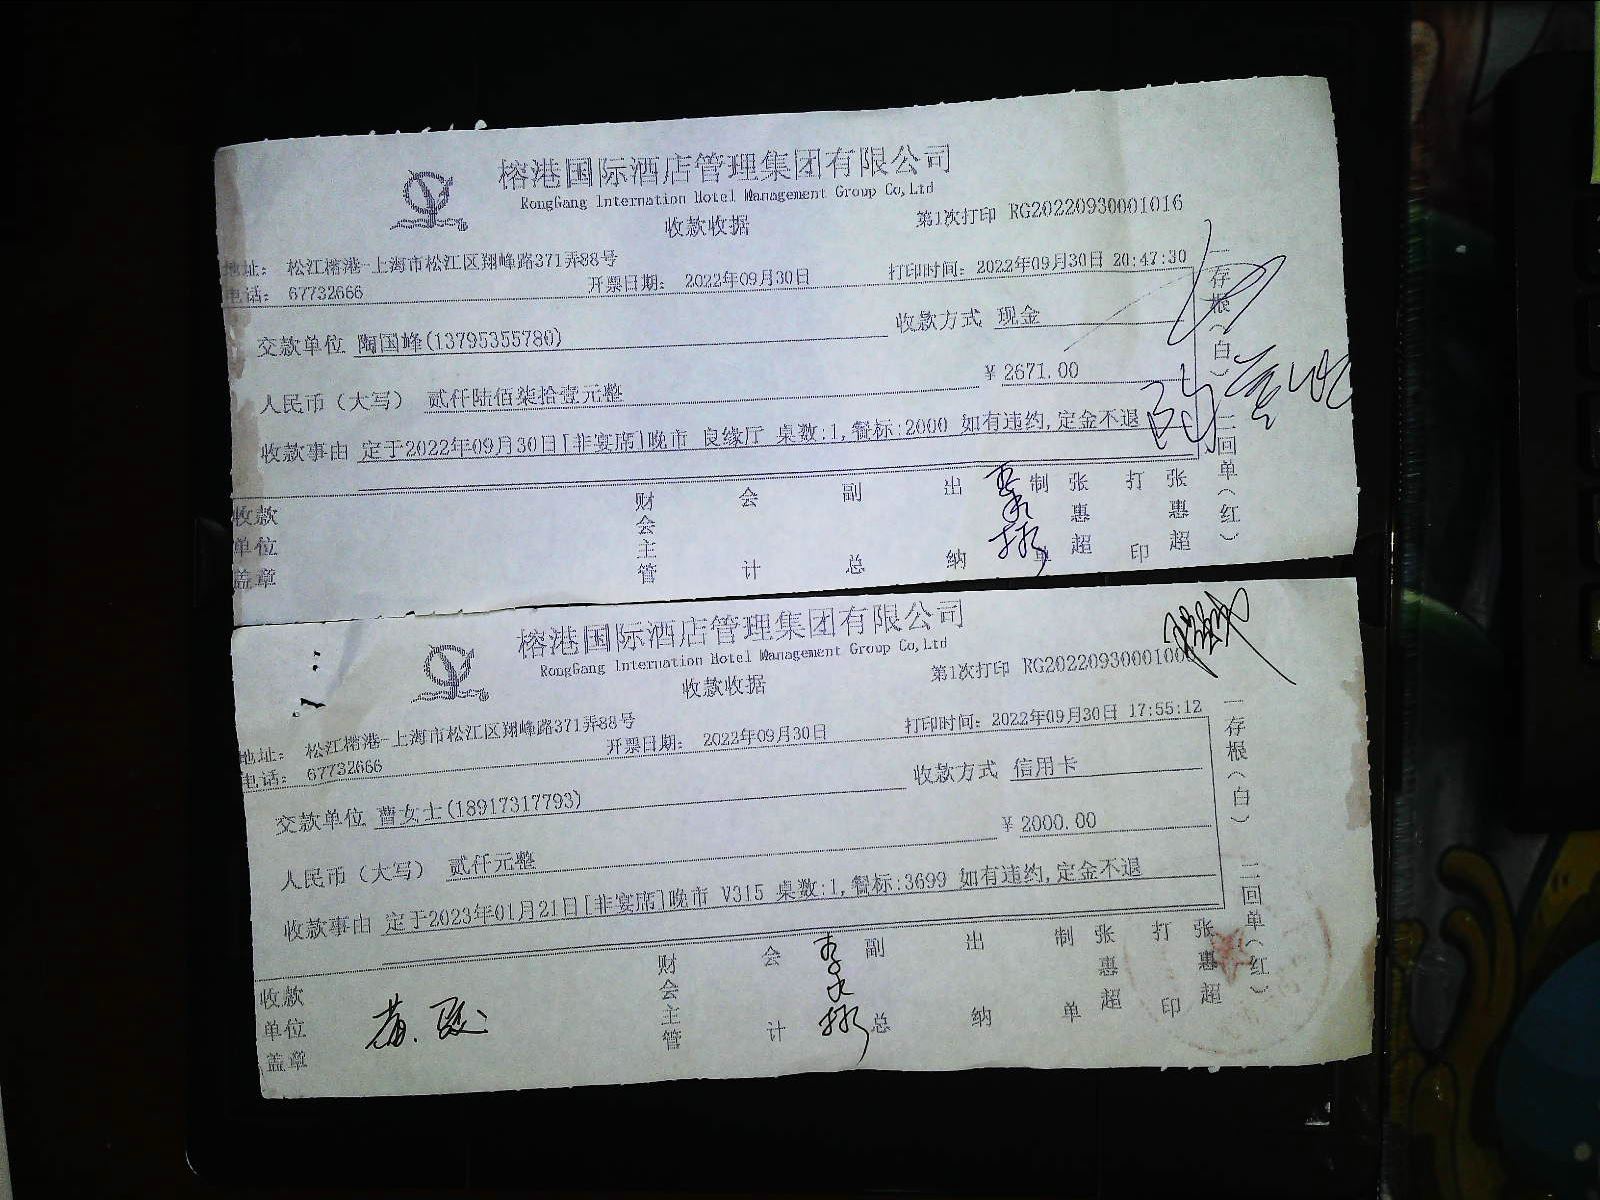 榕港国际酒店管理集团有限公司
RongGang Internation Hotel Management Group Co,Ltd
收款收据
第1次打印 RG20220930001016
地址： 松江榕港-上海市松江区翔峰路371弄88号
电话： 67732666
开票日期： 2022年09月30日
打印时间：2022年09月30日 20:47:30
交款单位 陶国峰(13795355780)
收款方式 现金
人民币（大写） 贰仟陆佰柒拾壹元整
￥ 2671.00
收款事由 定于2022年09月30日[非宴席]晚市 良缘厅 桌数:1,餐标:2000 如有违约,定金不退
一存根（白） 二回单（红）
收款单位盖章
财会主管
会计
副总
出纳
制单
张惠超
打印
张惠超
榕港国际酒店管理集团有限公司
RongGang Internation Hotel Management Group Co,Ltd
收款收据
第1次打印 RG2022093000100
地址： 松江榕港-上海市松江区翔峰路371弄88号
电话： 67732666
开票日期： 2022年09月30日
打印时间：2022年09月30日 17:55:12
交款单位 曹女士(18917317793)
收款方式 信用卡
人民币（大写） 贰仟元整
￥ 2000.00
收款事由 定于2023年01月21日[非宴席]晚市 V315 桌数:1,餐标:3699 如有违约,定金不退
一存根（白） 二回单（红）
收款单位盖章
财会主管
会计
副总
出纳
制单
张惠超
打印
张惠超